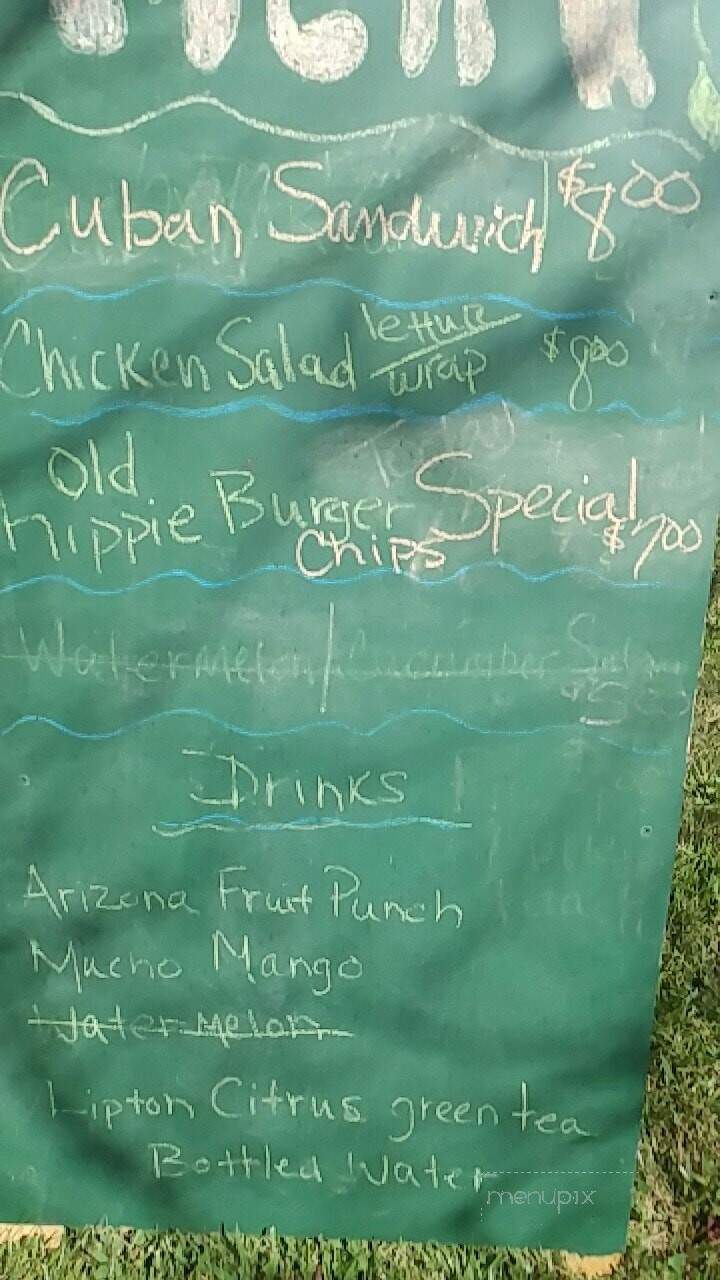 MENU
Cuban Sandwich $8.00
Chicken Salad lettuce wrap $8.00
Old
hippie Burger Special
Chips $7.00
Watermelon/Cucumber Salad
$5.00
Drinks
Arizona Fruit Punch
Mucho Mango
Watermelon
Lipton Citrus green tea
Bottled Water
menupix